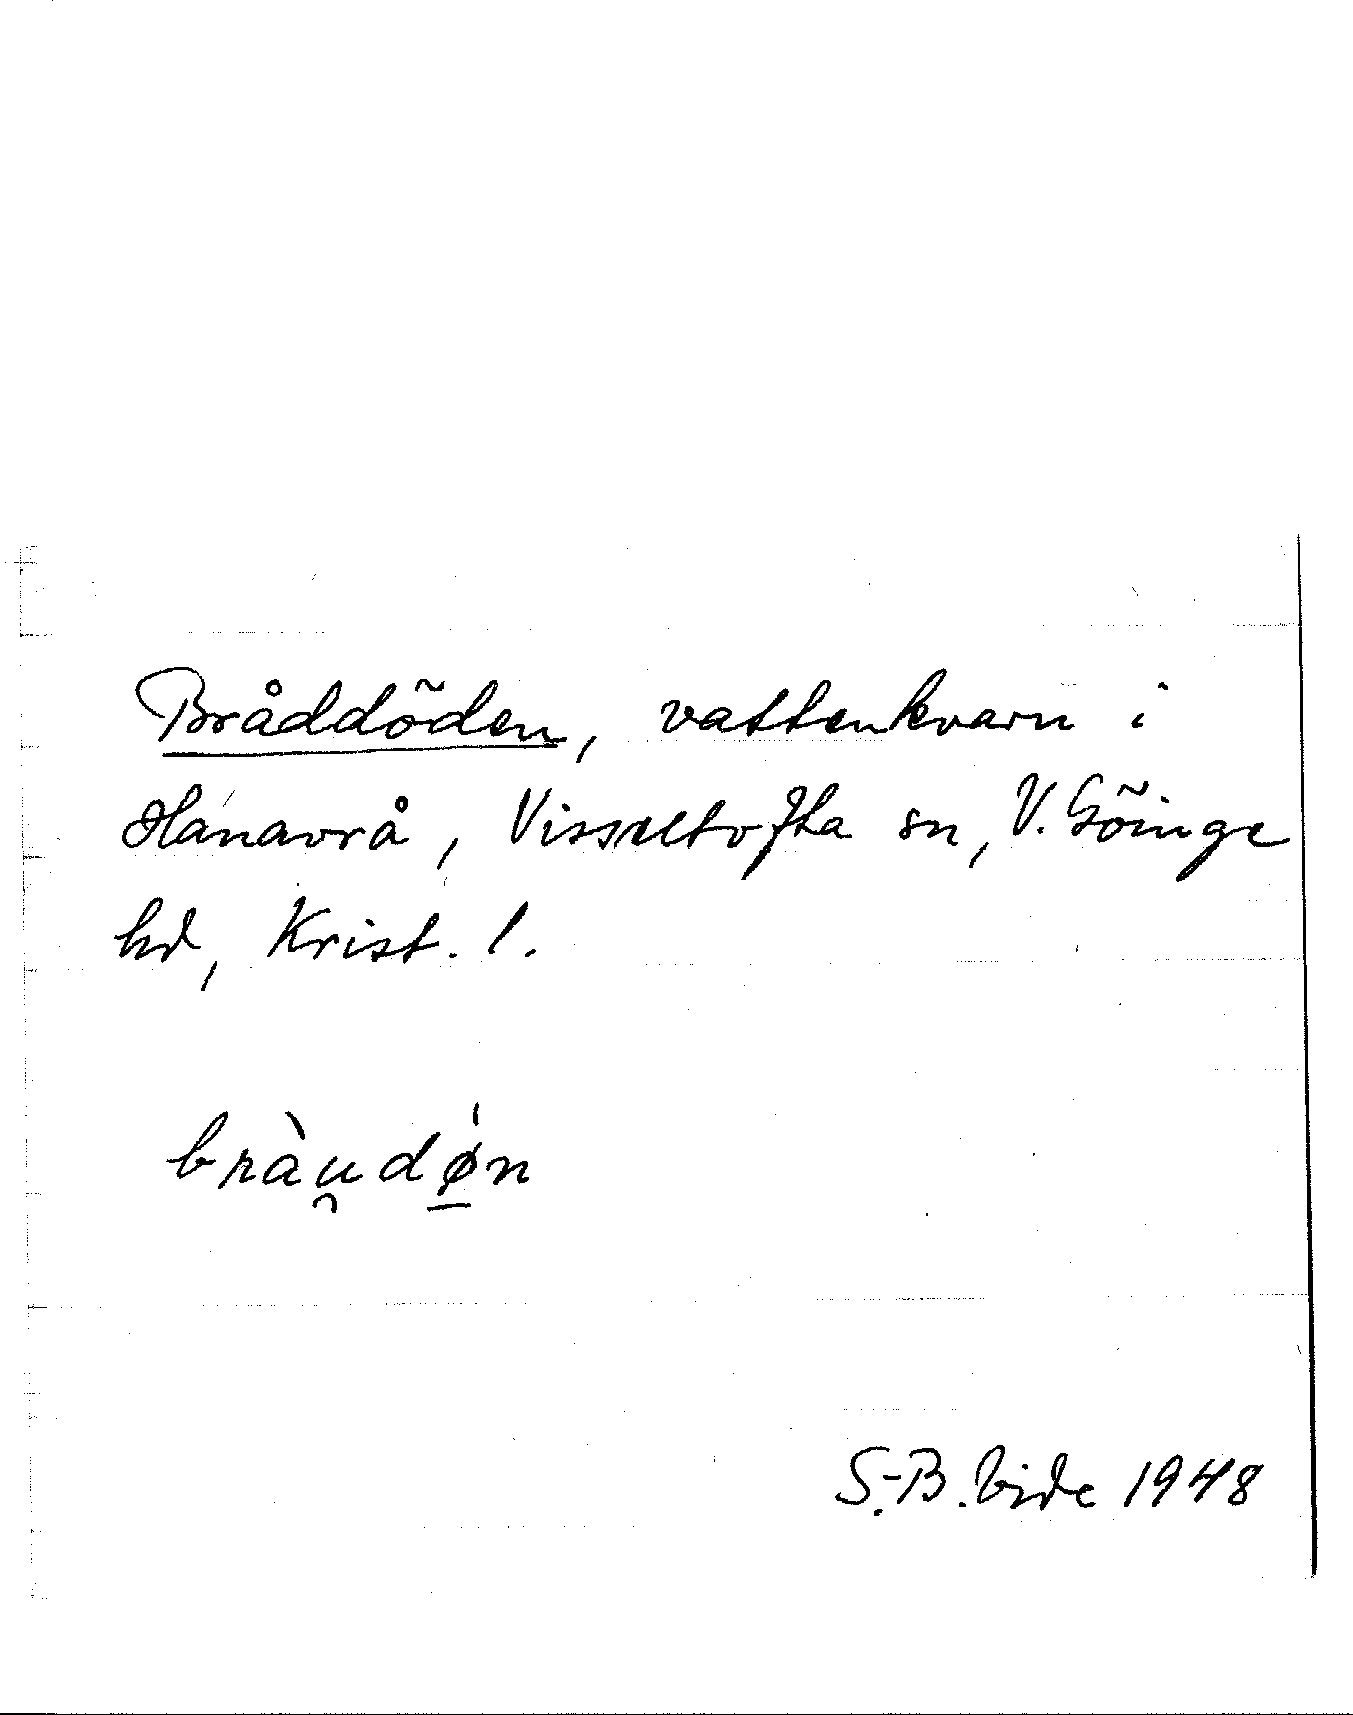 Bråddöden, vattenkvarn i
Hanavrå, Visseltofta sn, V. Göinge
hd, Krist. l.
bràu̯dǿ̲n
S.-B. Vide 1948